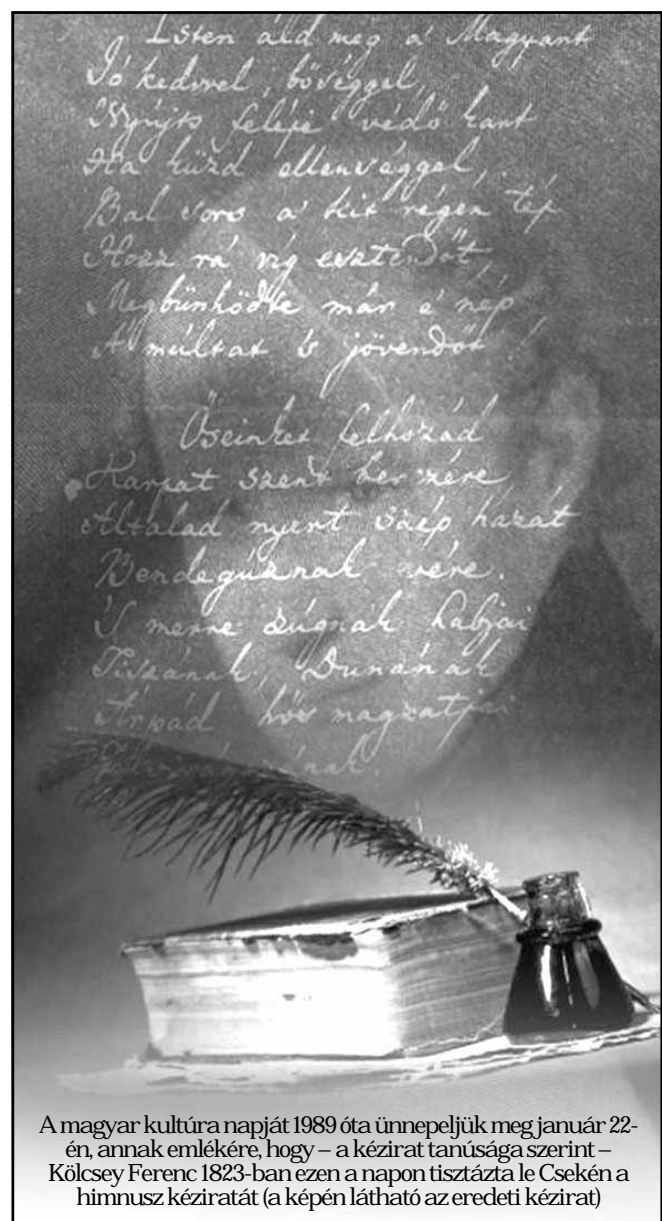 Isten áld meg a' Magyart
Jó kedvvel, bőséggel,
Nyújts feléje védő kart
Ha küzd ellenséggel,
Bal sors a' kit régen tép
Hozz rá víg esztendőt,
Megbűnhődte már e' nép
A' múltat 's jövendőt!
Őseinket felhozád
Kárpát szent bérczére
Általad nyert szép hazát
Bendegúznak vére.
'S merre zúgnak habjai
Tiszának, Dunának
Árpád hős magzatjai
A magyar kultúra napját 1989 óta ünnepeljük meg január 22-
én, annak emlékére, hogy – a kézirat tanúsága szerint –
Kölcsey Ferenc 1823-ban ezen a napon tisztázta le Csekén a
himnusz kéziratát (a képén látható az eredeti kézirat)